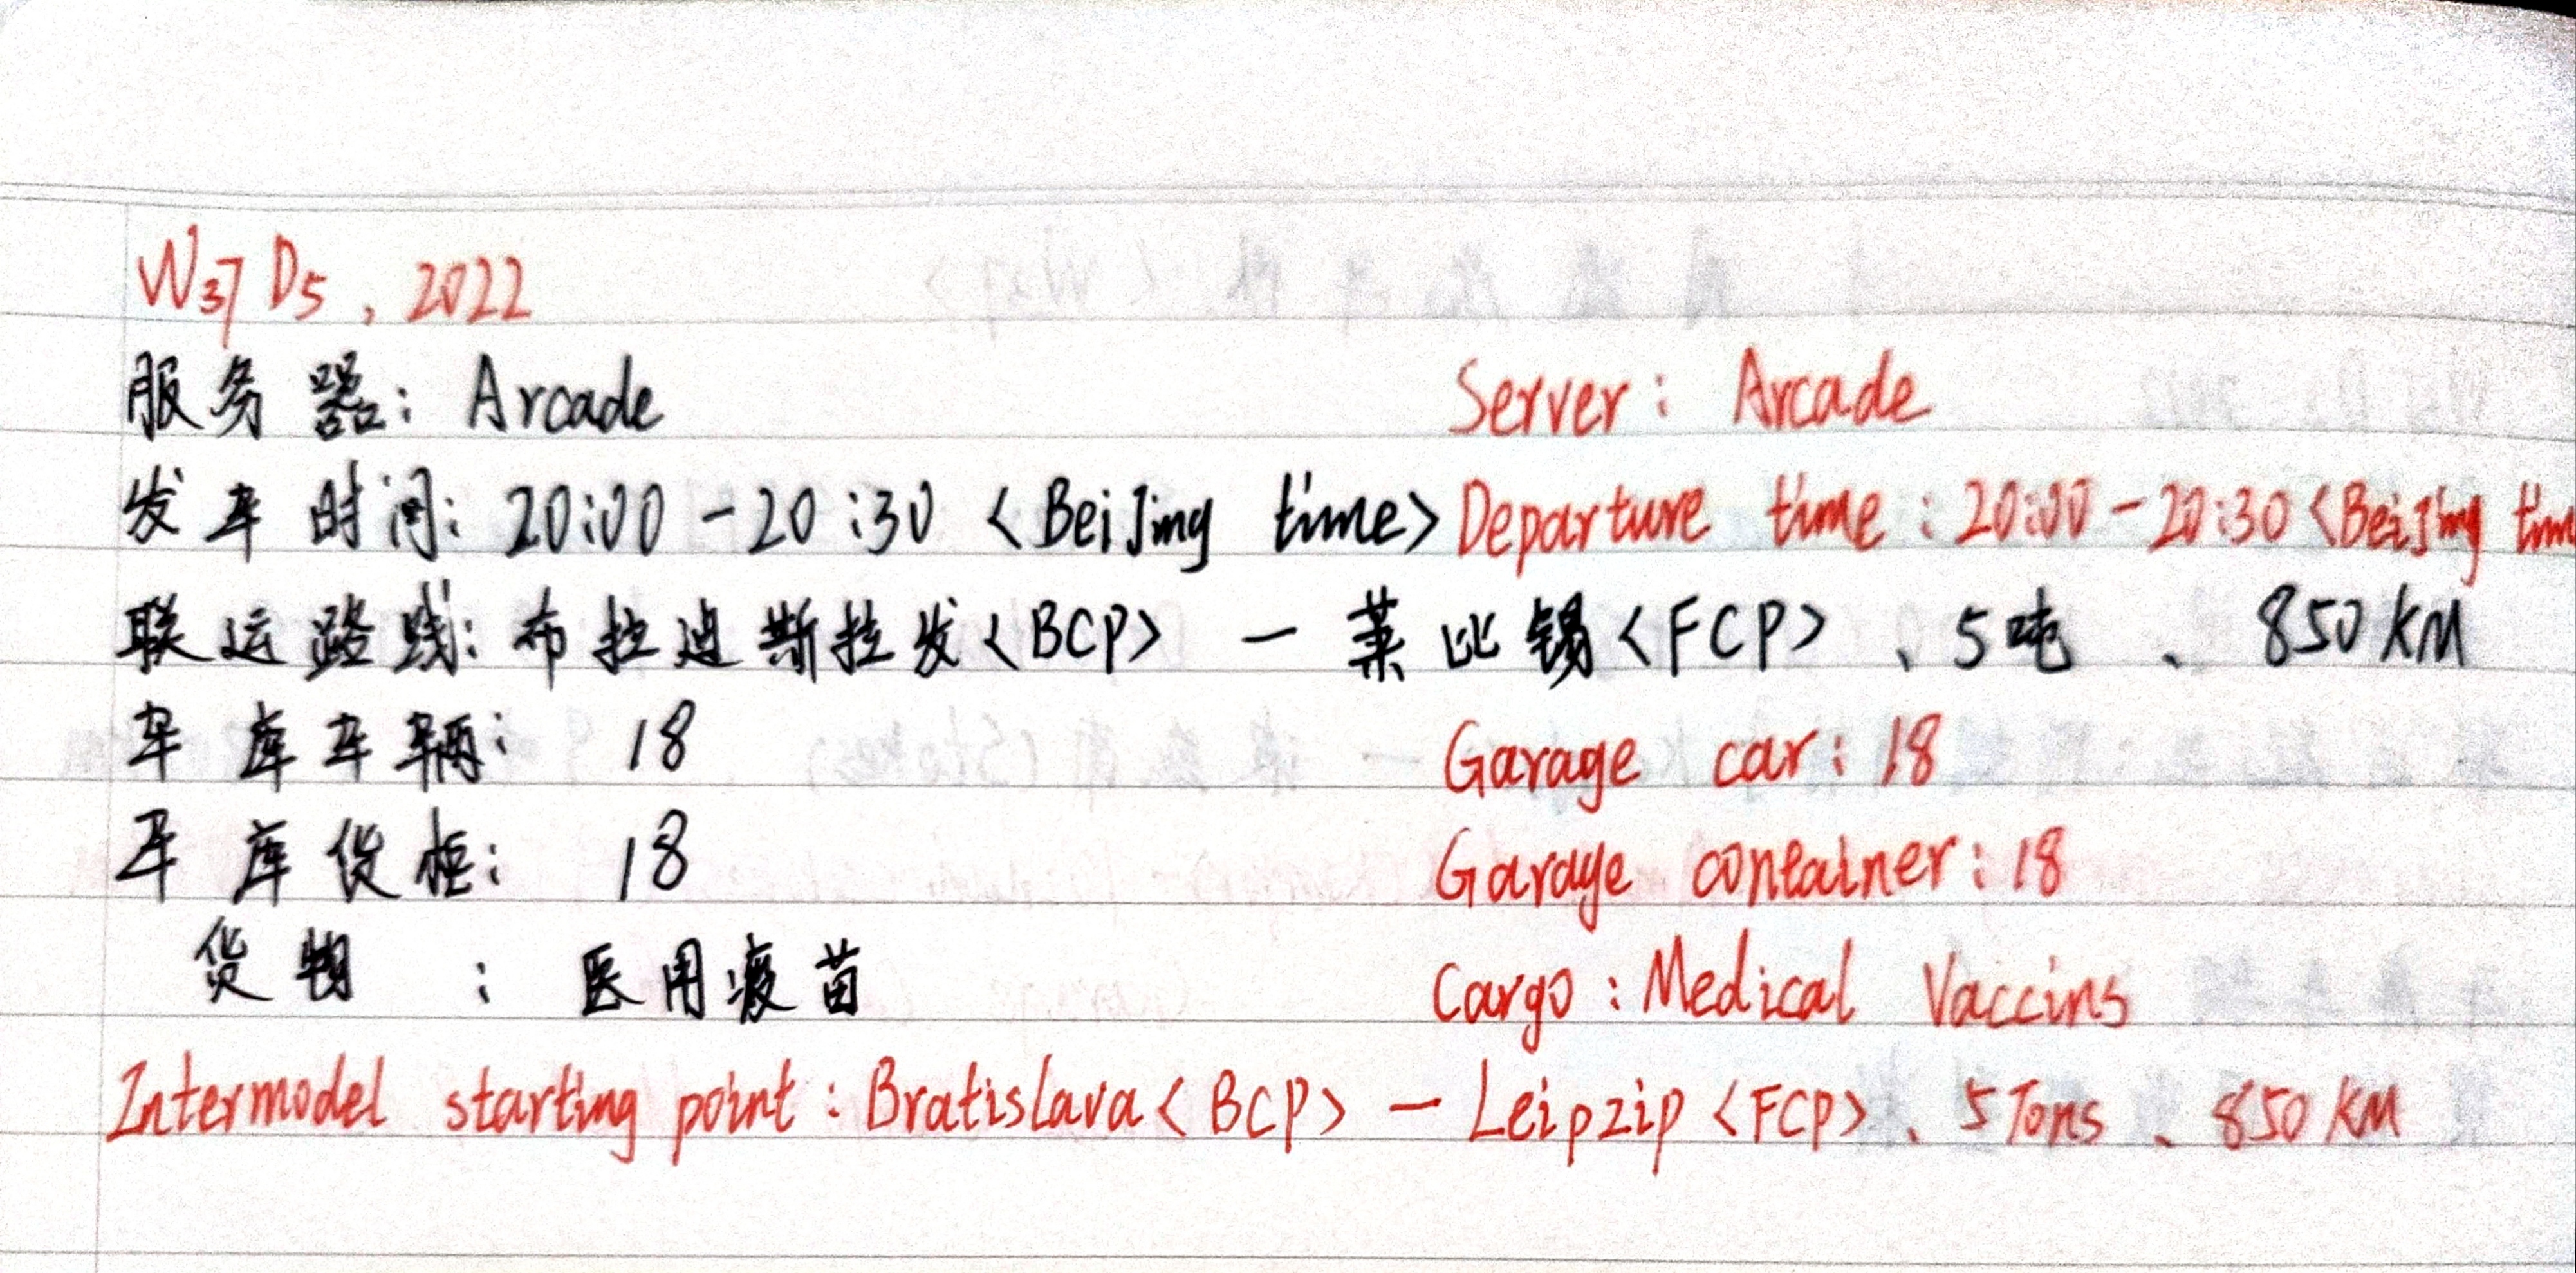 W37 D5, 2022
服务器: Arcade Server: Arcade
发车时间: 20:00-20:30 <BeiJing time> Departure time: 20:00-20:30 <BeiJing tim
联运路线: 布拉迪斯拉发<BCP> — 莱比锡<FCP>、5吨、850KM
车库车辆: 18 Garage car: 18
车库货柜: 18 Garage container: 18
货物: 医用疫苗 Cargo: Medical Vaccins
Intermodel starting point: Bratislava<BCP> — Leipzip<FCP>、5Tons、850KM